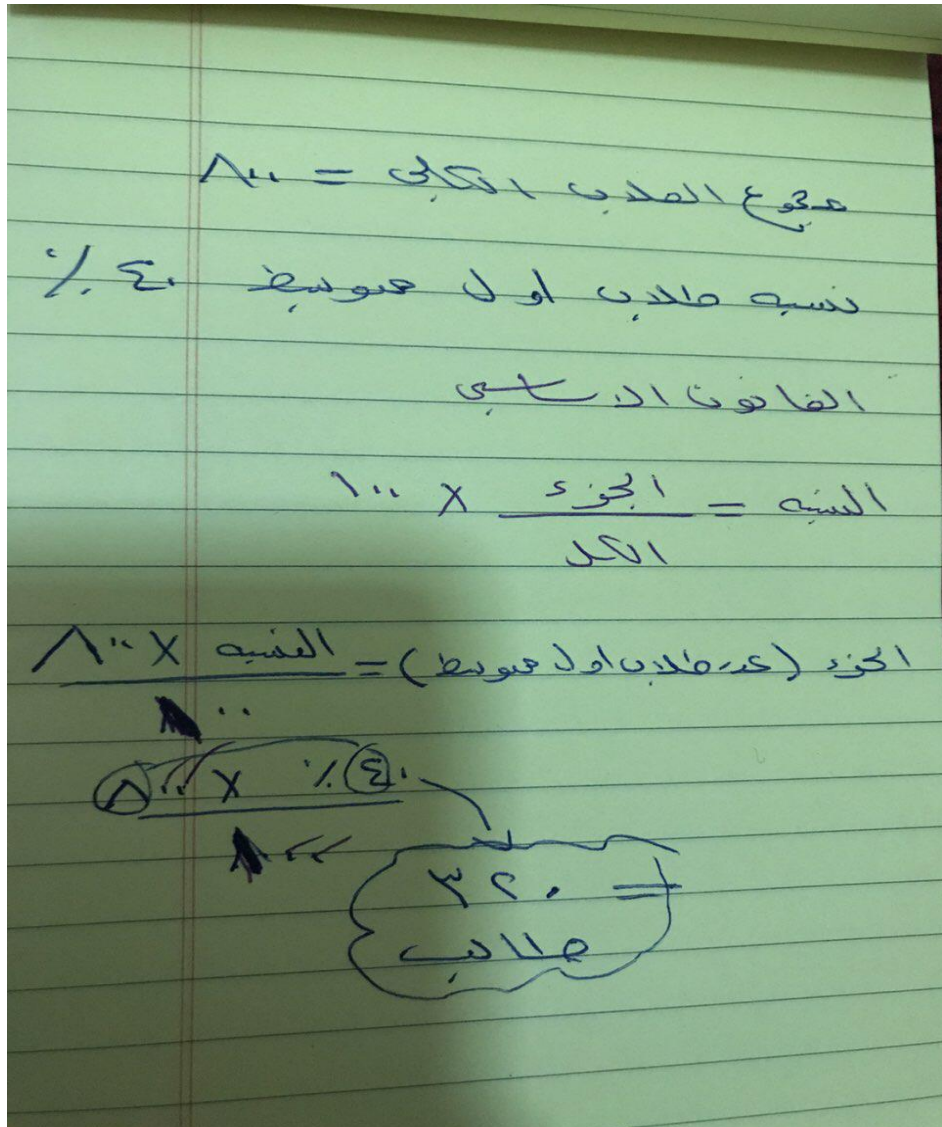 مجموع الطلاب الكلي = ٨٠٠
نسبه طلاب اول متوسط ٤٠ %
القانون الاساسي
النسبه = الجزء / الكل × ١٠٠
الجزء (عدد طلاب اول متوسط) = النسبه × ٨٠٠
١٠٠
٤٠ % × ٨٠٠
١٠٠
= ٣٢٠
طالب